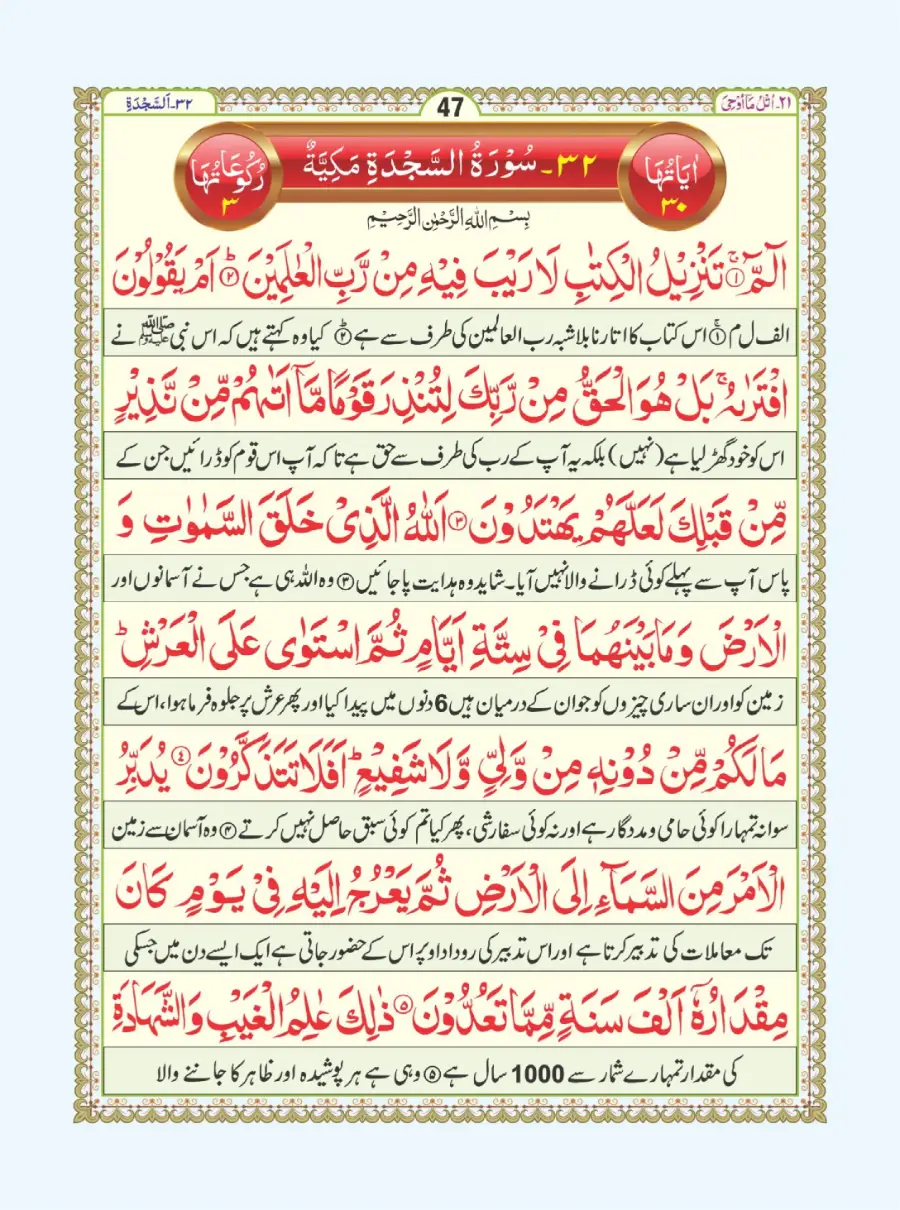 ۲۱۔ اُتْلُ مَآ اُوْحِیَ 47 ۳۲۔اَلسَّجْدَةِ
اٰیَاتُهَا ۳۰ ۳۲۔ سُوْرَةُ السَّجْدَةِ مَكِیَّةٌ رُكُوْعَاتُهَا ۳
بِسْمِ اللهِ الرَّحْمٰنِ الرَّحِیْمِ
الٓمّٓ ۚ﴿۱﴾ تَنْزِیْلُ الْكِتٰبِ لَا رَیْبَ فِیْهِ مِنْ رَّبِّ الْعٰلَمِیْنَ ؕ﴿۲﴾ اَمْ یَقُوْلُوْنَ
الف ل م ﴿۱﴾ اس کتاب کا اتارنا بلاشبہ رب العالمین کی طرف سے ہے ﴿۲﴾ کیا وہ کہتے ہیں کہ اس نبی ﷺ نے
افْتَرٰىهُ ۚ بَلْ هُوَ الْحَقُّ مِنْ رَّبِّكَ لِتُنْذِرَ قَوْمًا مَّاۤ اَتٰىهُمْ مِّنْ نَّذِیْرٍ
اس کو خود گھڑ لیا ہے (نہیں) بلکہ یہ آپ کے رب کی طرف سے حق ہے تاکہ آپ اس قوم کو ڈرائیں جن کے
مِّنْ قَبْلِكَ لَعَلَّهُمْ یَهْتَدُوْنَ ﴿۳﴾ اَللهُ الَّذِیْ خَلَقَ السَّمٰوٰتِ وَ
پاس آپ سے پہلے کوئی ڈرانے والا نہیں آیا۔ شاید وہ ہدایت پا جائیں ﴿۳﴾ وہ اللہ ہی ہے جس نے آسمانوں اور
الْاَرْضَ وَ مَا بَیْنَهُمَا فِیْ سِتَّةِ اَیَّامٍ ثُمَّ اسْتَوٰی عَلَی الْعَرْشِ ؕ
زمین کو اور ان ساری چیزوں کو جو ان کے درمیان ہیں 6 دنوں میں پیدا کیا اور پھر عرش پر جلوہ فرما ہوا، اس کے
مَا لَكُمْ مِّنْ دُوْنِهٖ مِنْ وَّلِیٍّ وَّ لَا شَفِیْعٍ ؕ اَفَلَا تَتَذَكَّرُوْنَ ﴿۴﴾ یُدَبِّرُ
سوا نہ تمہارا کوئی حامی و مددگار ہے اور نہ کوئی سفارشی، پھر کیا تم کوئی سبق حاصل نہیں کرتے ﴿۴﴾ وہ آسمان سے زمین
الْاَمْرَ مِنَ السَّمَآءِ اِلَی الْاَرْضِ ثُمَّ یَعْرُجُ اِلَیْهِ فِیْ یَوْمٍ كَانَ
تک معاملات کی تدبیر کرتا ہے اور اس تدبیر کی روداد اوپر اس کے حضور جاتی ہے ایک ایسے دن میں جسکی
مِقْدَارُهٗۤ اَلْفَ سَنَةٍ مِّمَّا تَعُدُّوْنَ ﴿۵﴾ ذٰلِكَ عٰلِمُ الْغَیْبِ وَ الشَّهَادَةِ
کی مقدار تمہارے شمار سے 1000 سال ہے ﴿۵﴾ وہی ہے ہر پوشیدہ اور ظاہر کا جاننے والا